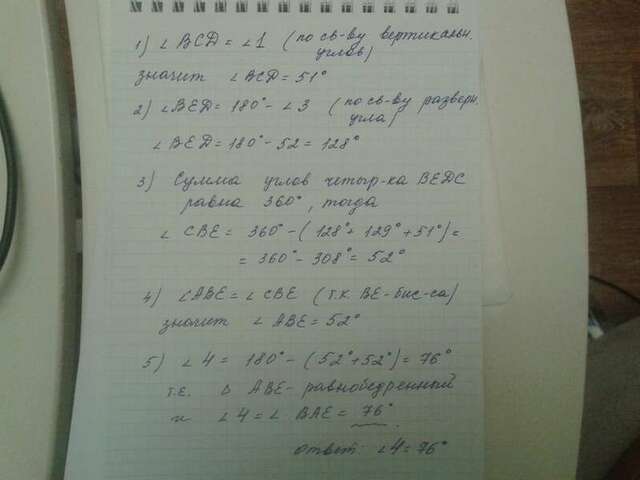 1) ∠BCD = ∠1 (по св-ву вертикальн.
углов)
значит ∠BCD = 51°
2) ∠BED = 180° - ∠3 (по св-ву разверн.
угла)
∠BED = 180° - 52 = 128°
3) Сумма углов четыр-ка BEDC
равна 360°, тогда
∠CBE = 360° - (128° + 129° + 51°) =
= 360° - 308° = 52°
4) ∠ABE = ∠CBE (т.к. BE - бис-са)
значит ∠ABE = 52°
5) ∠4 = 180° - (52° + 52°) = 76°
т.е. Δ ABE - равнобедренный
и ∠4 = ∠BAE = 76°.
ответ: ∠4 = 76°